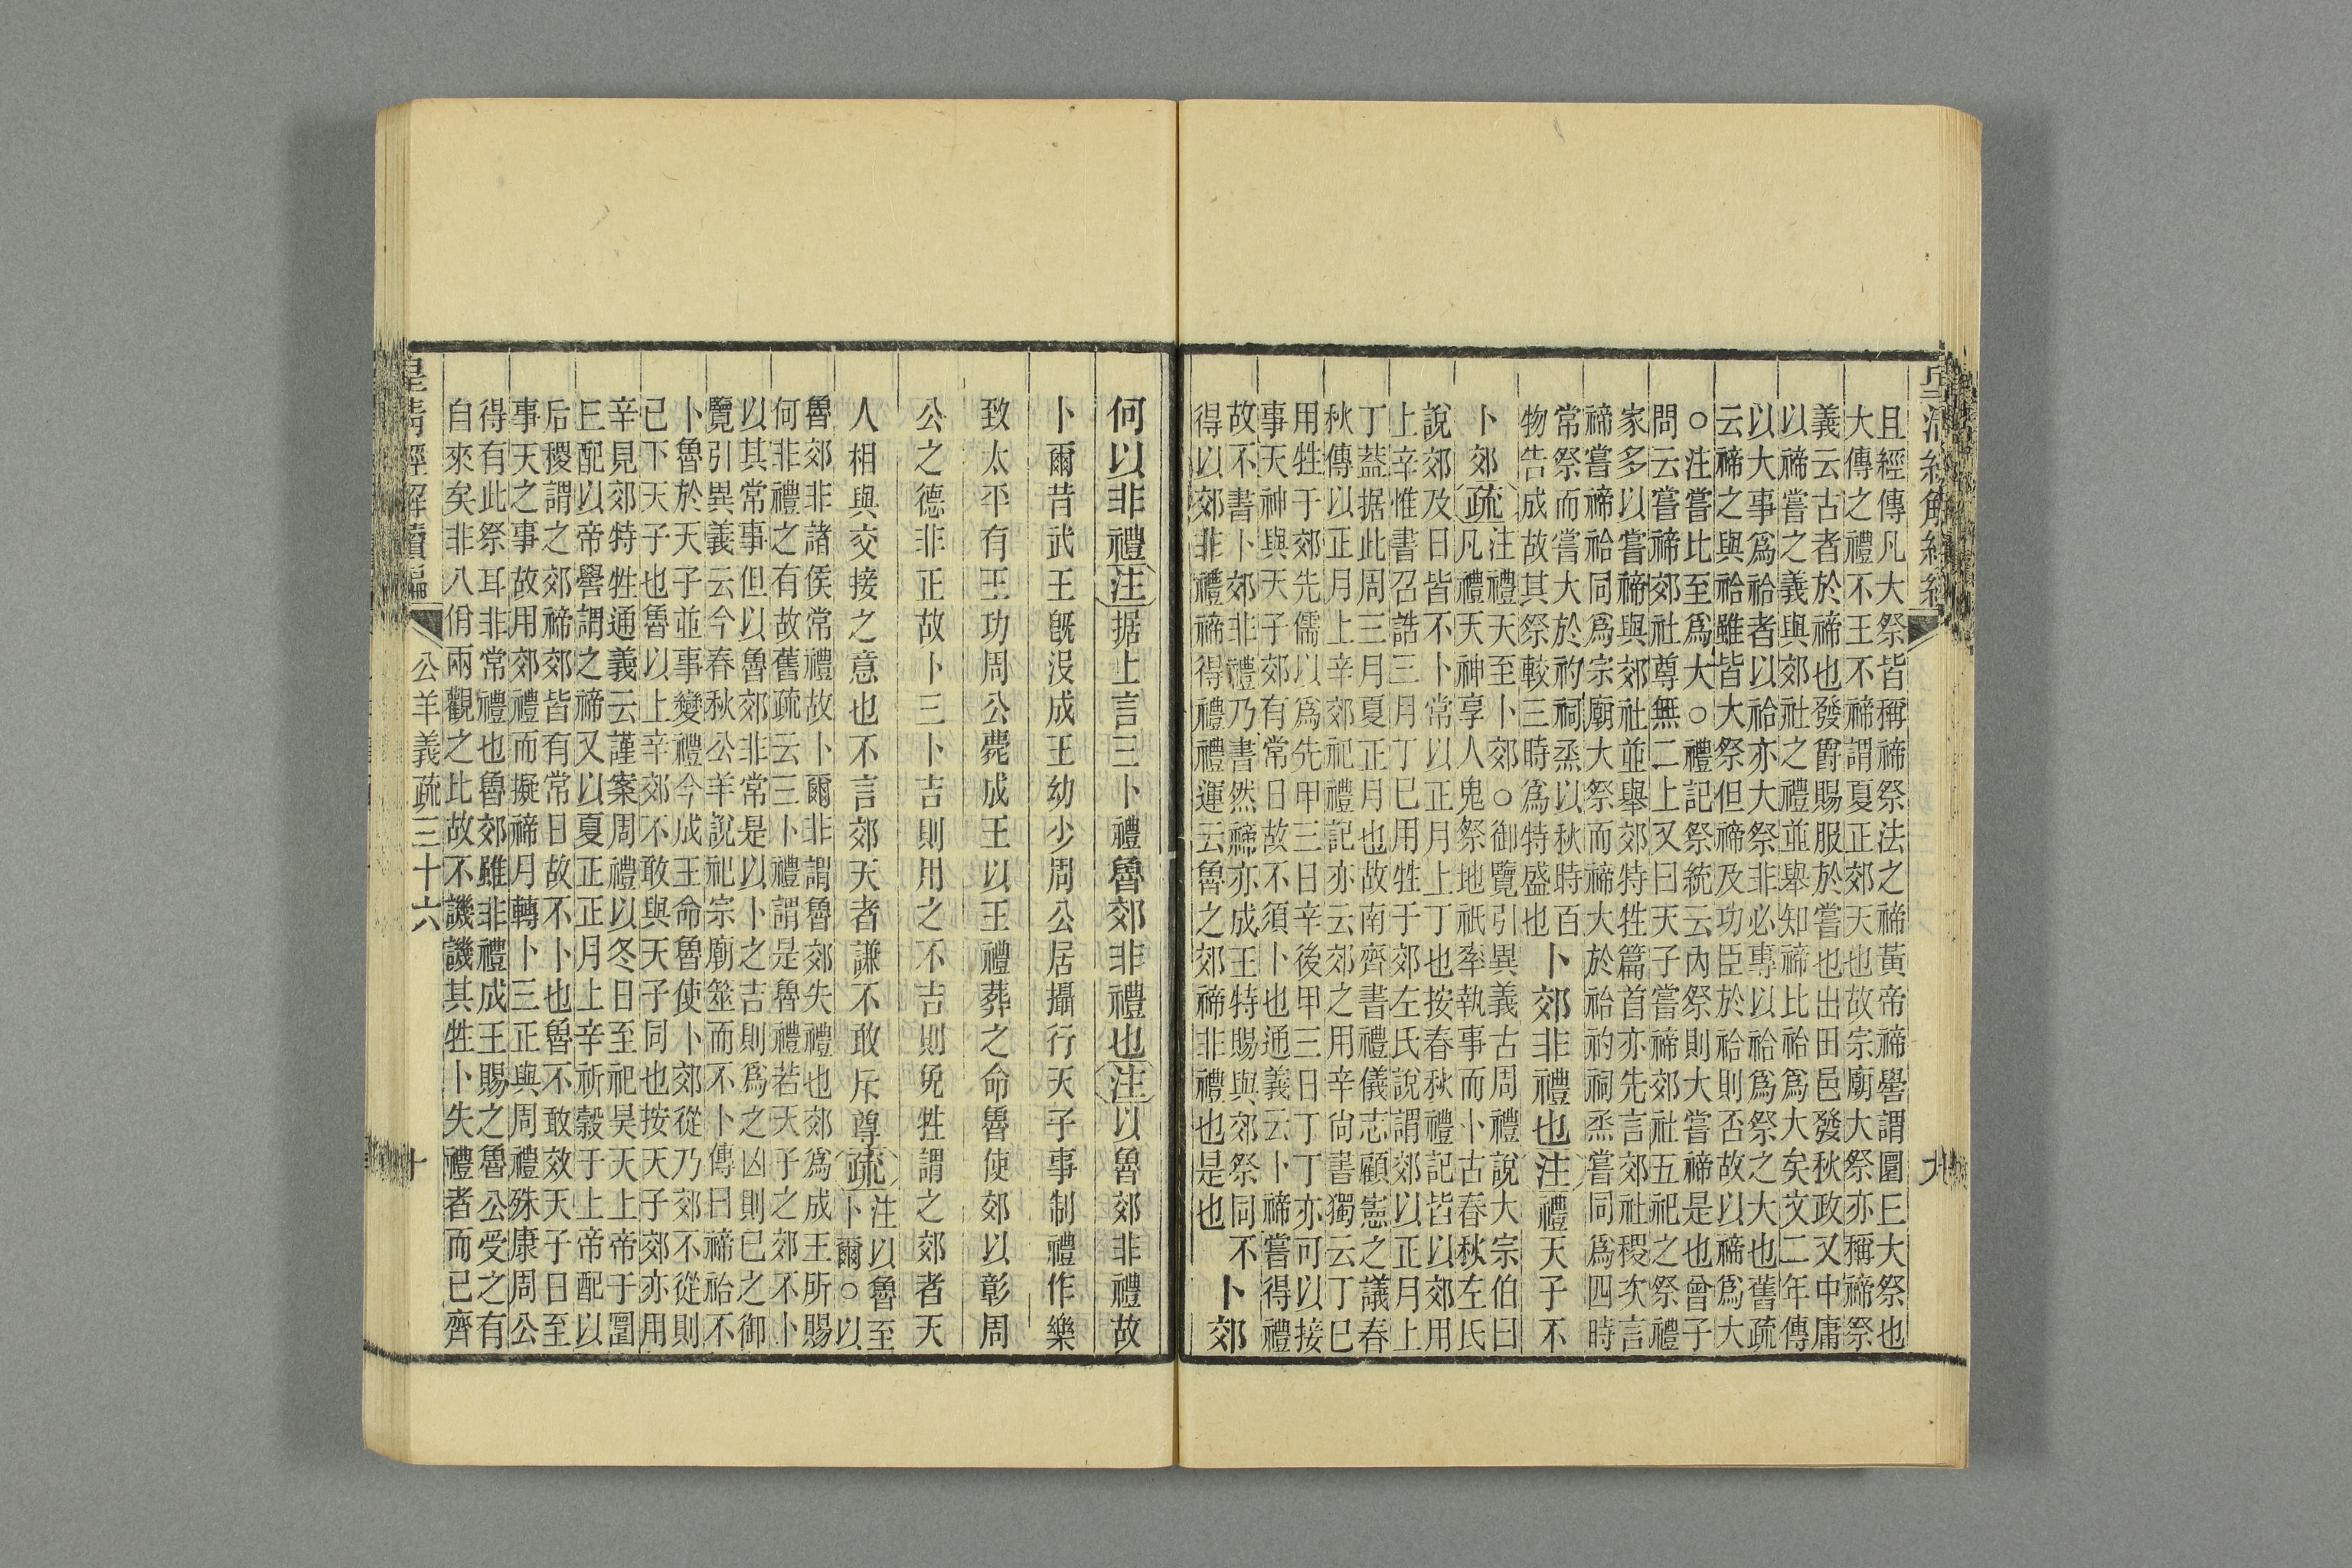 皇清經解續編
九
且經傳凡大祭皆稱禘祭法之禘黃帝禘嚳謂圜丘大祭也
大傳之禮不王不禘謂夏正郊天也故宗廟大祭亦稱禘祭
義云古者於禘也發爵賜服於嘗也出田邑發秋政又中庸
以禘嘗之義與郊社之禮並舉知禘比祫爲大矣文二年傳
以大事爲祫者以祫亦大祭非必專以祫爲祭之大也舊疏
云禘之與祫雖皆大祭但禘及功臣於祫則否故以禘爲大
○注嘗比至爲大○禮記祭統云內祭則大嘗禘是也曾子
問云嘗禘郊社尊無二上又曰天子嘗禘郊社五祀之祭禮
家多以嘗禘與郊社並舉郊特牲篇首亦先言郊社稷次言
禘嘗禘祫同爲宗廟大祭而禘大於祫礿祠烝嘗同爲四時
常祭而嘗大於礿祠烝以秋時百
物告成故其祭較三時爲特盛也
卜郊非禮也注禮天子不
卜郊疏
注禮天至卜郊○御覽引異義古周禮說大宗伯曰
凡禮天神享人鬼祭地祇牽執事而卜古春秋左氏
說郊及日皆不卜常以正月上丁也按春秋禮記皆以郊用
上辛惟書召誥三月丁巳用牲于郊左氏說謂郊以正月上
丁葢据此周三月夏正月也故南齊書禮儀志顧憲之議春
秋傳以正月上辛郊祀禮記亦云郊之用辛尙書獨云丁巳
用牲于郊先儒以爲先甲三日辛後甲三日丁丁亦可以接
事天神與天子郊有常日故不須卜也通義云卜禘嘗得禮
故不書卜郊非禮乃書然禘亦成王特賜與郊祭同不
得以郊非禮禘得禮禮運云魯之郊禘非禮也是也
卜郊
何以非禮注据上言三卜禮魯郊非禮也注以魯郊非禮故
卜爾昔武王旣沒成王幼少周公居攝行天子事制禮作樂
致太平有王功周公薨成王以王禮葬之命魯使郊以彰周
公之德非正故卜三卜吉則用之不吉則免牲謂之郊者天
人相與交接之意也不言郊天者謙不敢斥尊疏
注以魯至
卜爾○以
魯郊非諸侯常禮故卜爾非謂魯郊失禮也郊爲成王所賜
何非禮之有故舊疏云三卜禮謂是魯禮若天子之郊不卜
以其常事但以魯郊非常是以卜之吉則爲之凶則已之御
覽引異義云今春秋公羊說祀宗廟筮而不卜傳曰禘祫不
卜魯於天子並事變禮今成王命魯使卜郊從乃郊不從則
已下天子也魯以上辛郊不敢與天子同也按天子郊亦用
辛見郊特牲通義云謹案周禮以冬日至祀昊天上帝于圜
丘配以帝嚳謂之禘又以夏正正月上辛祈穀于上帝配以
后稷謂之郊禘郊皆有常日故不卜也魯不敢效天子日至
事天之事故用郊禮而擬禘月轉卜三正與周禮殊康周公
得有此祭耳非常禮也魯郊雖非禮成王賜之魯公受之有
自來矣非八佾兩觀之比故不譏譏其牲卜失禮者而已齊
皇清經解續編
公羊義疏三十六
十